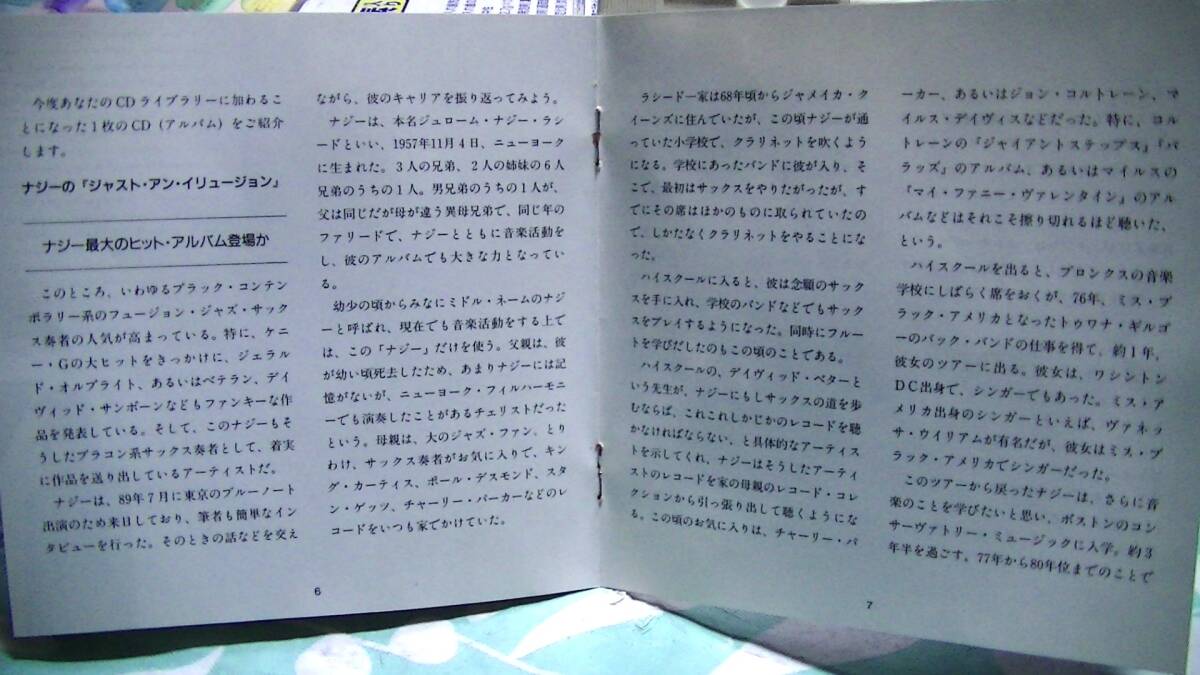 今度あなたのCDライブラリーに加わるこ
とになった1枚のCD（アルバム）をご紹介
します。
ナジーの『ジャスト・アン・イリュージョン』
ナジー最大のヒット・アルバム登場か
このところ、いわゆるブラック・コンテン
ポラリー系のフュージョン・ジャズ・サック
ス奏者の人気が高まっている。特に、ケニ
ー・Gの大ヒットをきっかけに、ジェラル
ド・オルブライト、あるいはベテラン、デイ
ヴィッド・サンボーンなどもファンキーな作
品を発表している。そして、このナジーもそ
うしたブラコン系サックス奏者として、着実
に作品を送り出しているアーティストだ。
ナジーは、89年7月に東京のブルーノート
出演のため来日しており、筆者も簡単なイン
タビューを行った。そのときの話などを交え
ながら、彼のキャリアを振り返ってみよう。
ナジーは、本名ジュローム・ナジー・ラシ
ードといい、1957年11月4日、ニューヨーク
に生まれた。3人の兄弟、2人の姉妹の6人
兄弟のうちの1人。男兄弟のうちの1人が、
父は同じだが母が違う異母兄弟で、同じ年の
ファリードで、ナジーとともに音楽活動を
し、彼のアルバムでも大きな力となってい
る。
幼少の頃からみなにミドル・ネームのナジ
ーと呼ばれ、現在でも音楽活動をする上で
は、この「ナジー」だけを使う。父親は、彼
が幼い頃死去したため、あまりナジーには記
憶がないが、ニューヨーク・フィルハーモニ
ーでも演奏したことがあるチェリストだった
という。母親は、大のジャズ・ファン。とり
わけ、サックス奏者がお気に入りで、キン
グ・カーティス、ポール・デスモンド、スタ
ン・ゲッツ、チャーリー・パーカーなどのレ
コードをいつも家でかけていた。
6
ラシード一家は68年頃からジャメイカ・ク
イーンズに住んでいたが、この頃ナジーが通
っていた小学校で、クラリネットを吹くよう
になる。学校にあったバンドに彼が入り、そ
こで、最初はサックスをやりたがったが、す
でにその席はほかのものに取られていたの
で、しかたなくクラリネットをやることにな
った。
ハイスクールに入ると、彼は念願のサック
スを手に入れ、学校のバンドなどでもサック
スをプレイするようになった。同時にフルー
トを学びだしたのもこの頃のことである。
ハイスクールの、デイヴィッド・ベターと
いう先生が、ナジーにもしサックスの道を歩
むならば、これこれしかじかのレコードを聴
かなければならない、と具体的なアーティス
トを示してくれ、ナジーはそうしたアーティ
ストのレコードを家の母親のレコード・コレ
クションから引っ張り出して聴くようにな
る。この頃のお気に入りは、チャーリー・パ
ーカー、あるいはジョン・コルトレーン、マ
イルス・デイヴィスなどだった。特に、コル
トレーンの『ジャイアントステップス』『バ
ラッズ』のアルバム、あるいはマイルスの
『マイ・ファニー・ヴァレンタイン』のアル
バムなどはそれこそ擦り切れるほど聴いた、
という。
ハイスクールを出ると、ブロンクスの音楽
学校にしばらく席をおくが、76年、ミス・ブ
ラック・アメリカとなったトゥワナ・ギルゴ
ーのバック・バンドの仕事を得て、約1年、
彼女のツアーに出る。彼女は、ワシントン
DC出身で、シンガーでもあった。ミス・ア
メリカ出身のシンガーといえば、ヴァネッ
サ・ウイリアムが有名だが、彼女はミス・ブ
ラック・アメリカでシンガーだった。
このツアーから戻ったナジーは、さらに音
楽のことを学びたいと思い、ボストンのコン
サーヴァトリー・ミュージックに入学。約3
年半を過ごす。77年から80年位までのことで
7